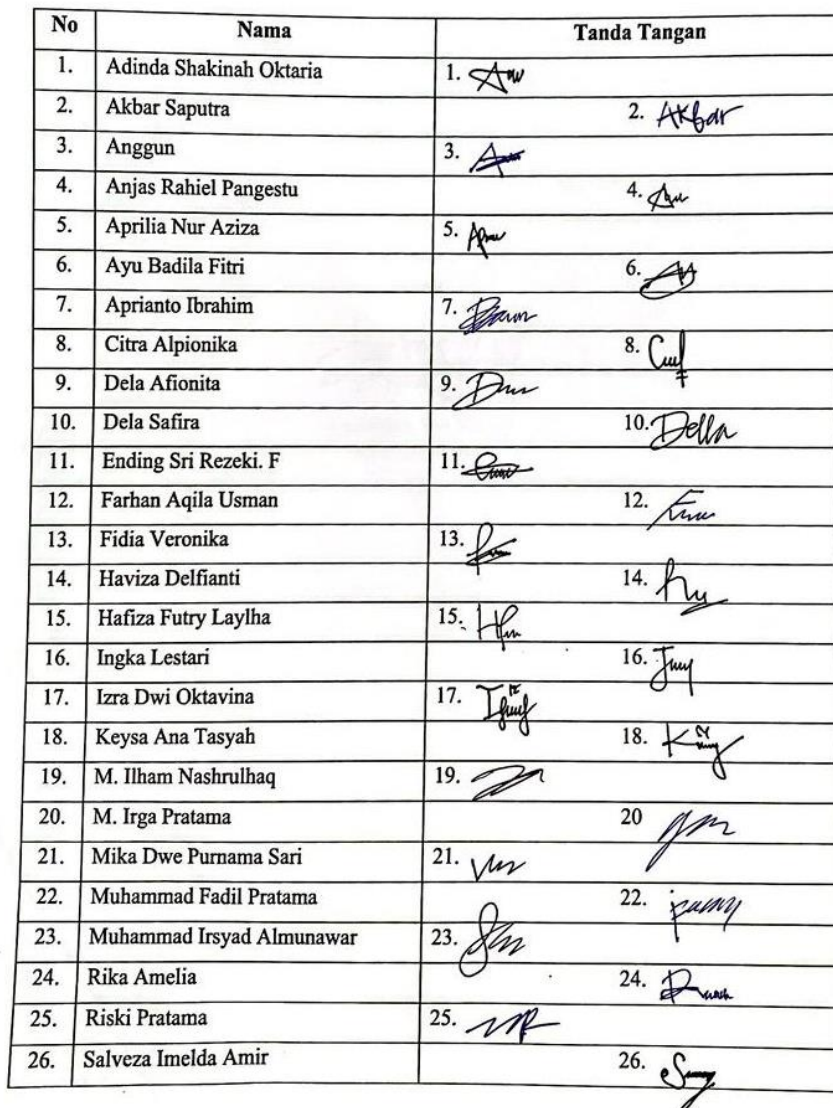 No Nama Tanda Tangan
1. Adinda Shakinah Oktaria 1.
2. Akbar Saputra 2. Akbar
3. Anggun 3.
4. Anjas Rahiel Pangestu 4.
5. Aprilia Nur Aziza 5.
6. Ayu Badila Fitri 6.
7. Aprianto Ibrahim 7.
8. Citra Alpionika 8.
9. Dela Afionita 9.
10. Dela Safira 10. Della
11. Ending Sri Rezeki. F 11.
12. Farhan Aqila Usman 12.
13. Fidia Veronika 13.
14. Haviza Delfianti 14.
15. Hafiza Futry Laylha 15.
16. Ingka Lestari 16.
17. Izra Dwi Oktavina 17.
18. Keysa Ana Tasyah 18.
19. M. Ilham Nashrulhaq 19.
20. M. Irga Pratama 20
21. Mika Dwe Purnama Sari 21.
22. Muhammad Fadil Pratama 22.
23. Muhammad Irsyad Almunawar 23.
24. Rika Amelia 24.
25. Riski Pratama 25.
26. Salveza Imelda Amir 26.